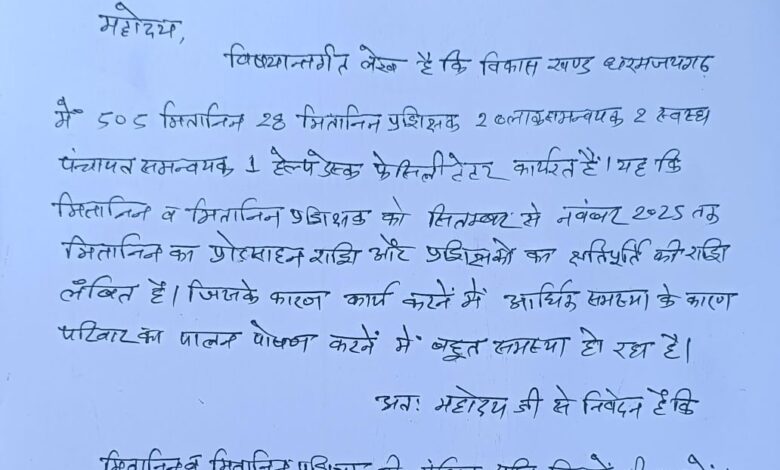 महोदय,
विषयान्तर्गत लेख है कि विकास खण्ड धरमजयगढ़
में 505 मितानिन 28 मितानिन प्रशिक्षक 2 ब्लाकसमन्वयक 2 स्वस्थ
पंचायत समन्वयक 1 हेल्पडेस्क फेसिलीटेटर कार्यरत हैं। यह कि
मितानिन व मितानिन प्रशिक्षक को सितम्बर से नवंबर 2025 तक
मितानिन का प्रोत्साहन राशि और प्रशिक्षकों का क्षतिपूर्ति की राशि
लंबित है। जिसके कारण कार्य करनें में आर्थिक समस्या के कारण
परिवार का पालन पोषण करनें में बहुत समस्या हो रहा है।
अतः महोदय जी से निवेदन है कि
मितानिन व मितानिन